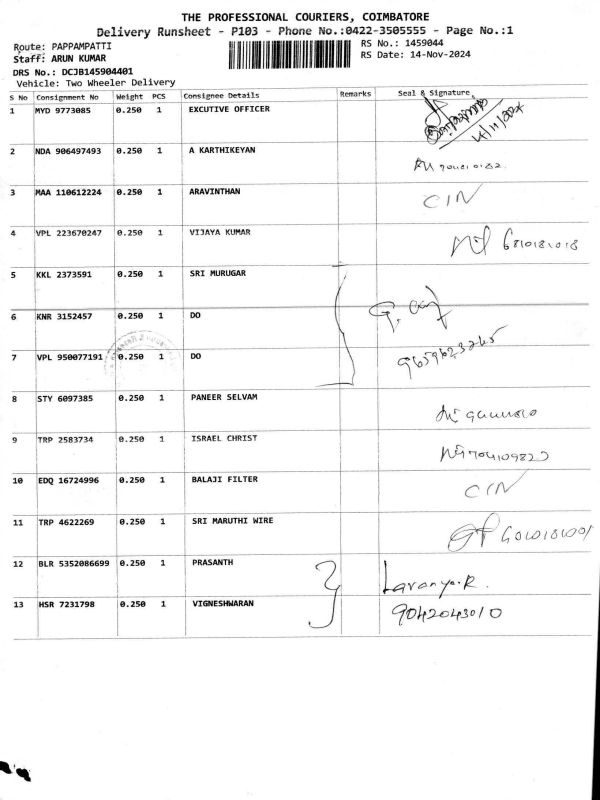 THE PROFESSIONAL COURIERS, COIMBATORE
Delivery Runsheet - P103 - Phone No.:0422-3505555 - Page No.:1
Route: PAPPAMPATTI RS No.: 1459044
Staff: ARUN KUMAR RS Date: 14-Nov-2024
DRS No.: DCJB145904401
Vehicle: Two Wheeler Delivery
S No Consignment No Weight PCS Consignee Details Remarks Seal & Signature
1 MYD 9773085 0.250 1 EXCUTIVE OFFICER
2 NDA 906497493 0.250 1 A KARTHIKEYAN
3 MAA 110612224 0.250 1 ARAVINTHAN CIN
4 VPL 223670247 0.250 1 VIJAYA KUMAR
5 KKL 2373591 0.250 1 SRI MURUGAR
6 KNR 3152457 0.250 1 DO
7 VPL 950077191 0.250 1 DO 9659623265
8 STY 6097385 0.250 1 PANEER SELVAM
9 TRP 2583734 0.250 1 ISRAEL CHRIST
10 EDQ 16724996 0.250 1 BALAJI FILTER CIN
11 TRP 4622269 0.250 1 SRI MARUTHI WIRE
12 BLR 5352086699 0.250 1 PRASANTH Lavanya.R.
13 HSR 7231798 0.250 1 VIGNESHWARAN 9042043010